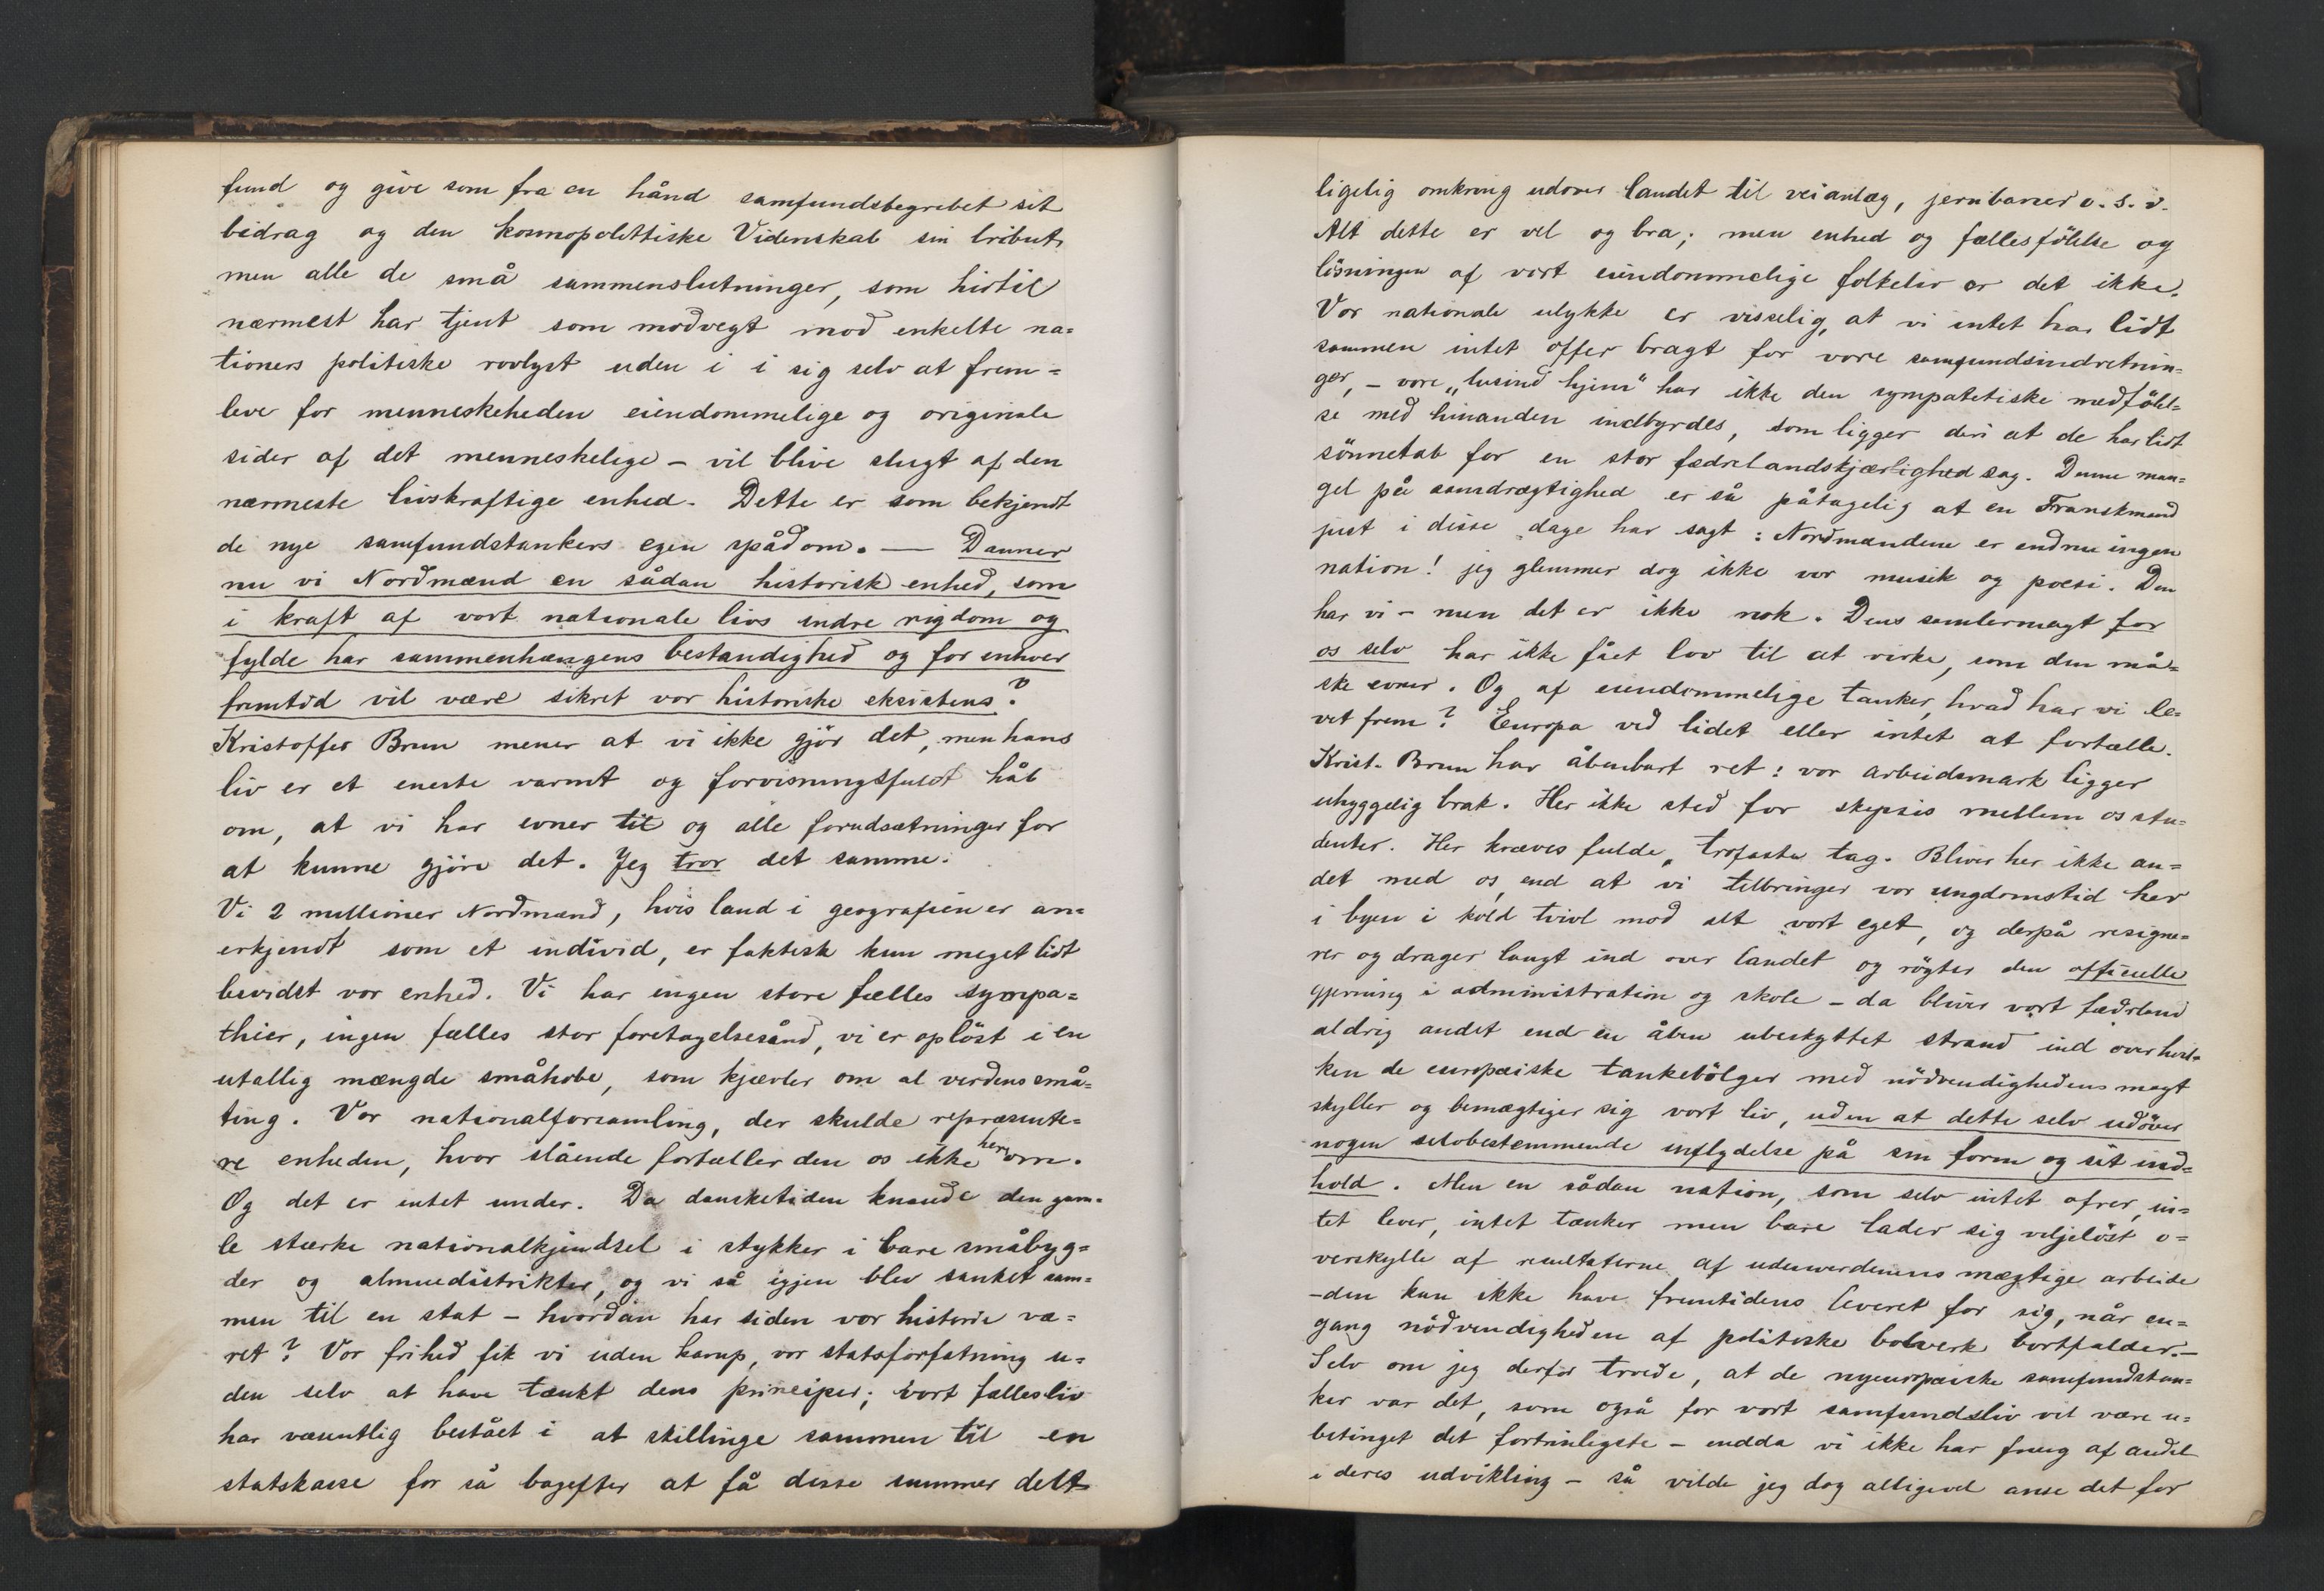 fund og give som fra en hånd samfundsbegrebet sit
bidrag og den kosmopolittiske Videnskab sin tribut,
men alle de små sammenslutninger, som hidtil
nærmest har tjent som modvegt mod enkelte na=
tioners politiske rovlyst uden i i sig selv at frem=
leve for menneskeheden eiendommelige og originale
sider af det menneskelige – vil blive slugt af den
nærmeste livskraftige enhed. Dette er som bekjendt
de nye samfundstankers egen spådom. — Danner
nu vi Nordmænd en sådan historisk enhed, som
i kraft af vort nationale livs indre rigdom og
fylde har sammenhængens bestandighed og for enhver
fremtid vil være sikret vor historiske eksistens?
Kristoffer Brun mener at vi ikke gjör det, men hans
liv er et eneste varmt og forvisningsfuldt håb
om, at vi har evner til og alle forudsætninger for
at kunne gjöre det. Jeg tror det samme.
Vi 2 millioner Nordmænd, hvis land i geografien er an=
erkjendt som et individ, er faktisk kun meget lidt
bevidst vor enhed. Vi har ingen store fælles sympa=
thier, ingen fælles stor foretagelsesånd, vi er oplöst i en
utallig mængde småhobe, som kjævler om al verdens små=
ting. Vor nationalforsamling, der skulde repræsente=
re enheden, hvor slående fortæller den os ikke herom.
Og det er intet under. Da dansketiden knuede den gam=
le stærke nationalkjendsel i stykker i bare småbyg=
der og almuedistrikter, og vi så igjen blev sanket sam=
men til en stat – hvordan har siden vor historie væ=
ret? Vor frihed fik vi uden kamp, vor statsforfatning u=
den selv at have tænkt dens principer; vort fællesliv
har væsentlig bestået i at skillinge sammen til en
statskasse for så bagefter at få disse summer delt
ligelig omkring udover landet til veianlæg, jernbaner o. s. v.
Alt dette er vel og bra; men enhed og fællesfölelse og
lösningen af vort eiendommelige folkeliv er det ikke.
Vor nationale ulykke er visselig, at vi intet har lidt
sammen intet offer bragt for vore samfundsindretnin=
ger, – vore „tusind hjem" har ikke den sympatetiske medfölel=
se med hinanden indbyrdes, som ligger deri at de har lidt
sönnetab for en stor fædrelandskjærlighed sag. Denne man=
gel på samdrægtighed er så påtagelig at en Franskmand
just i disse dage har sagt: Nordmændene er endnu ingen
nation! jeg glemmer dog ikke vor musik og poesi. Den
har vi – men det er ikke nok. Dens samlermagt for
os selv har ikke fået lov til at virke, som den må=
ske evner. Og af eiendommelige tanker, hvad har vi le=
vet frem? Europa ved lidet eller intet at fortælle.
Krist. Brun har åbenbart ret: vor arbeidsmark ligger
uhyggelig brak. Her ikke sted for skepsis mellem os stu=
denter. Her kræves fulde, trofaste tag. Bliver her ikke an=
det med os, end at vi tilbringer vor ungdomstid her
i byen i kold tvivl mod alt vort eget, og derpå resigne=
rer og drager langt ind over landet og rögter den officielle
gjerning i administration og skole – da bliver vort fædreland
aldrig andet end en åben ubeskyttet strand ind over hvil=
ken de europæiske tankebölger med nödvendighedens magt
skyller og bemægtiger sig vort liv, uden at dette selv udöver
nogen selvbestemmende inflydelse på sin form og sit ind=
hold. Men en sådan nation, som selv intet ofrer, in=
tet lever, intet tænker men bare lader sig viljelöst o=
verskylle af resultaterne af udenverdenens mægtige arbeide
– den kan ikke have fremtidens leveret for sig, når en=
gang nödvendigheden af politiske bolverk bortfalder. –
Selv om jeg derfor troede, at de nyeuropæiske samfundstan=
ker var det, som også for vort samfundsliv vil være u=
betinget det fortrinligste – endda vi ikke har af andel
i deres udvikling – så vilde jeg dog alligevel anse det for